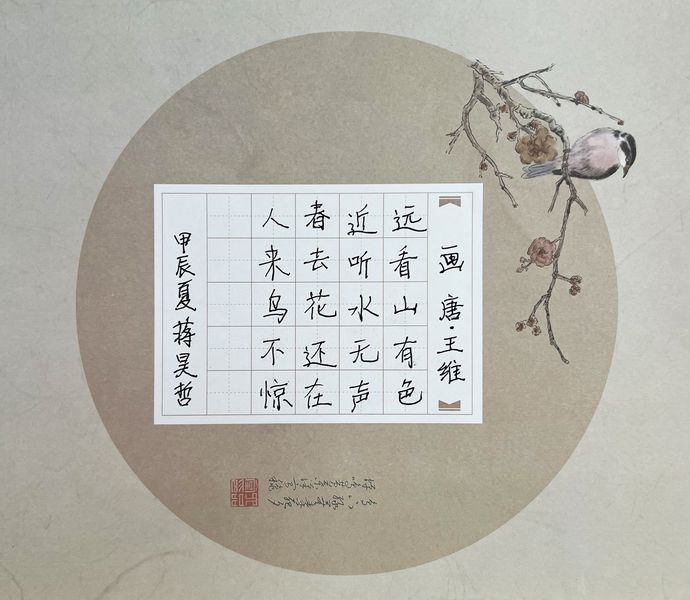 画 唐·王维
远看山有色
近听水无声
春去花还在
人来鸟不惊
甲辰夏蒋昊哲